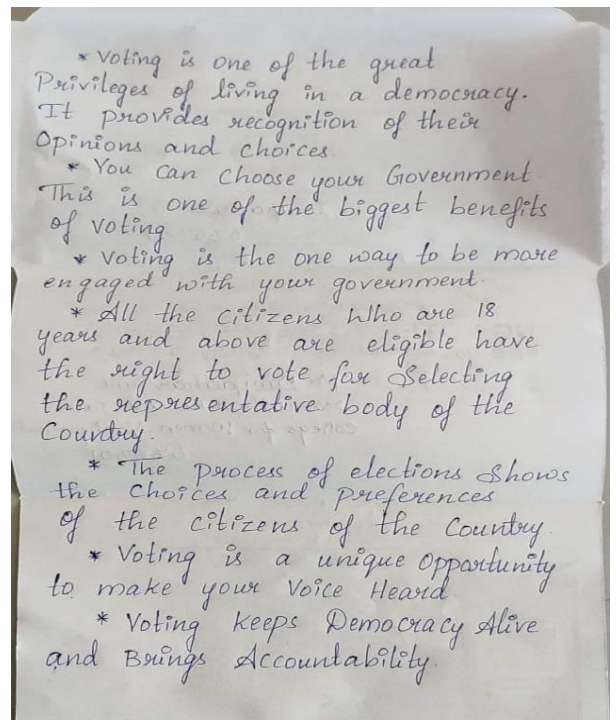 * Voting is one of the great
Privileges of living in a democracy.
It provides recognition of their
Opinions and choices.
* You Can Choose your Government
This is one of the biggest benefits
of voting
* Voting is the one way to be more
engaged with your government.
* All the Citizens Who are 18
years and above are eligible have
the right to vote for Selecting
the representative body of the
Country.
* The process of elections Shows
the Choices and preferences
of the citizens of the Country.
* Voting is a unique Opportunity
to make your Voice Heard
* Voting keeps Democracy Alive
and Brings Accountability.